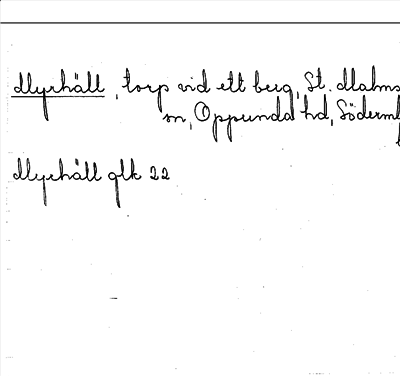 Myrhäll, torp vid ett berg, St. Malms
sn, Oppunda hd, Söderml
Myrhäll glk 22